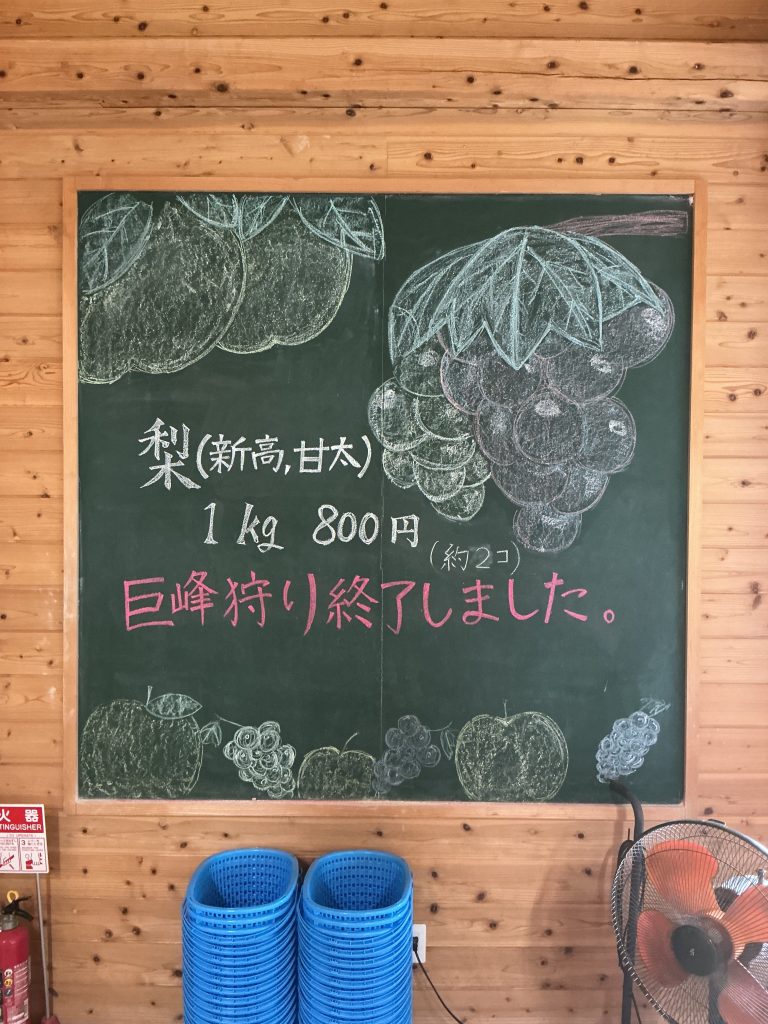 梨(新高,甘太)
1kg 800円
(約2コ)
巨峰狩り終了しました。
火器
TINGUISHER
3